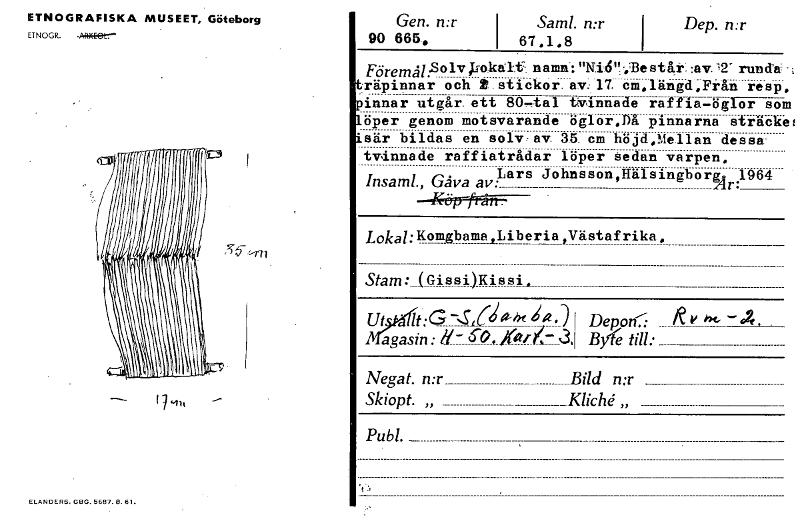 ETNOGRAFISKA MUSEET, Göteborg
ETNOGR. ARKEOL.
35 cm
17 cm
ELANDERS, GBG. 5687. 8. 61.
Gen. n:r Saml. n:r Dep. n:r
90 665. 67.1.8
Föremål: Solv, Lokalt namn: "Nió". Består av 2 runda
träpinnar och 2 stickor av 17 cm, längd. Från resp.
pinnar utgår ett 80-tal tvinnade raffia-öglor som
löper genom motsvarande öglor. Då pinnarna sträckes
isär bildas en solv av 35 cm höjd. Mellan dessa
tvinnade raffiatrådar löper sedan varpen.
Insaml., Gåva av: Lars Johnsson, Hälsingborg, År: 1964
Köp från:
Lokal: Komgbama, Liberia, Västafrika.
Stam: (Gissi)Kissi.
Utställt: G-S. (bamba.) Depon.: Rvm-2.
Magasin: H-50. Kart.-3. Byte till:
Negat. n:r Bild n:r
Skiopt. „ Kliché „
Publ.